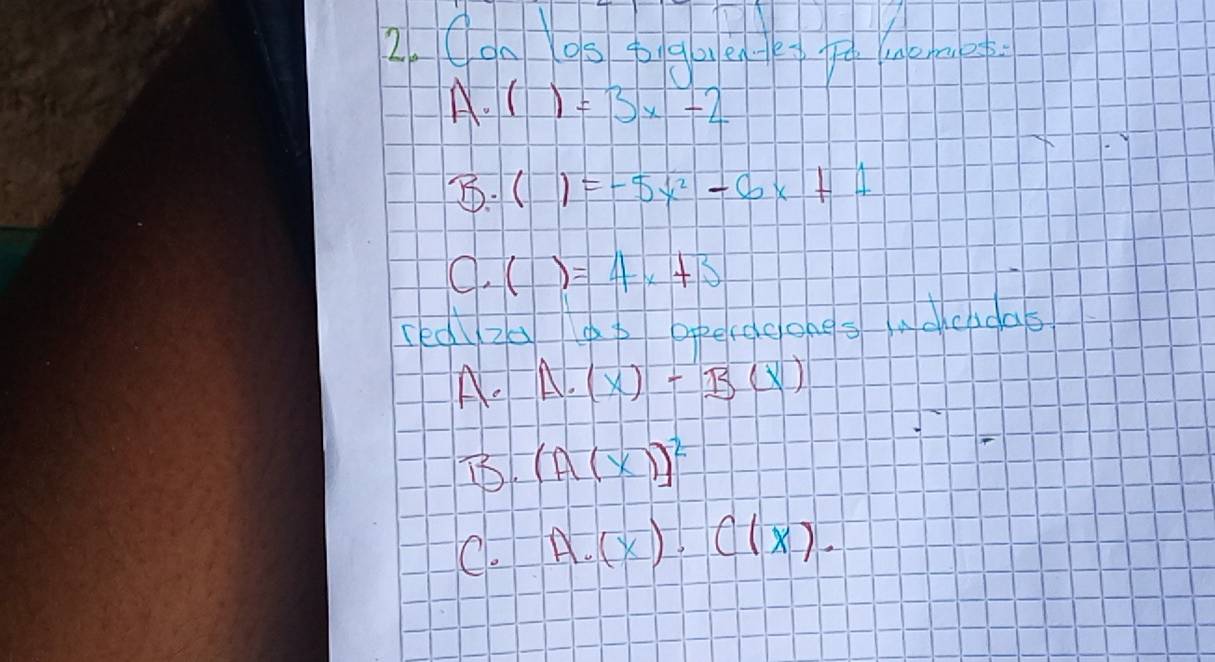 2. Con los siguientes Polinomios:
A.( ) = 3x - 2
B.( ) = -5x² - 6x + 1
C.( ) = 4x + 3
realiza las operaciones indicadas
A. A.(x) - B(x)
B. (A(x)]²
C. A.(x). C(x).